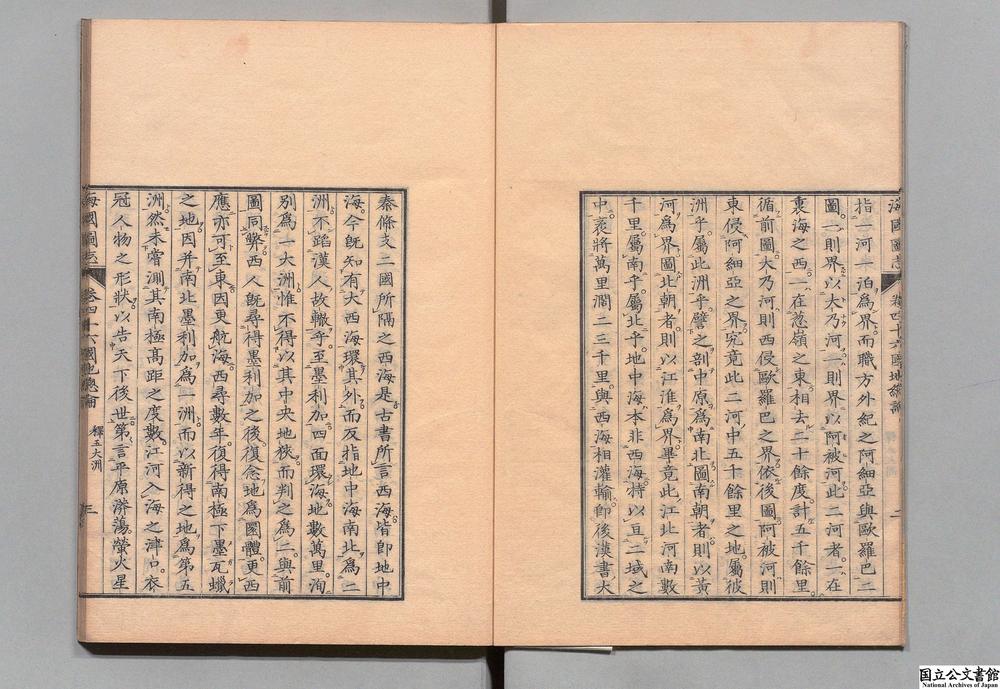 海國圖志 卷四十六 國地總論 二
指一河一泊爲界而職方外紀之阿細亞與歐羅巴二
圖一則界以大乃河一則界以阿被河此二河者一在
裏海之西一在葱嶺之東相去二十餘度計五千餘里
循前圖大乃河則西侵歐羅巴之界依後圖阿被河則
東侵阿細亞之界究竟此二河中五千餘里之地屬彼
洲乎屬此洲乎譬之剖中原爲南北圖南朝者則以黃
河爲界圖北朝者則以江淮爲界畢竟此江北河南數
千里屬南乎屬北乎地中海本非西海特以亙二域之
中袤將萬里濶二三千里與西海相灌輸卽後漢書大
秦條支二國所隔之西海是古書所言西海皆卽地中
海今既知有大西海環其外而反指地中海南北爲二
洲不蹈漢人故轍乎至墨利加四面環海地數萬里洵
別爲一大洲惟不得以其中央地狹而判之爲二與前
圖同弊西人既尋得墨利加之後復念地爲圜體更西
應亦可至東因更航海西尋數年復得南極下墨瓦蠟
之地因并南北墨利加爲一洲而以新得之地爲第五
洲然未嘗測其南極高距之度數江河入海之津口衣
冠人物之形狀以告天下後世第言平原漭蕩螢火星
海國圖志 卷四十六 國地總論 釋五大洲 三
国立公文書館
National Archives of Japan